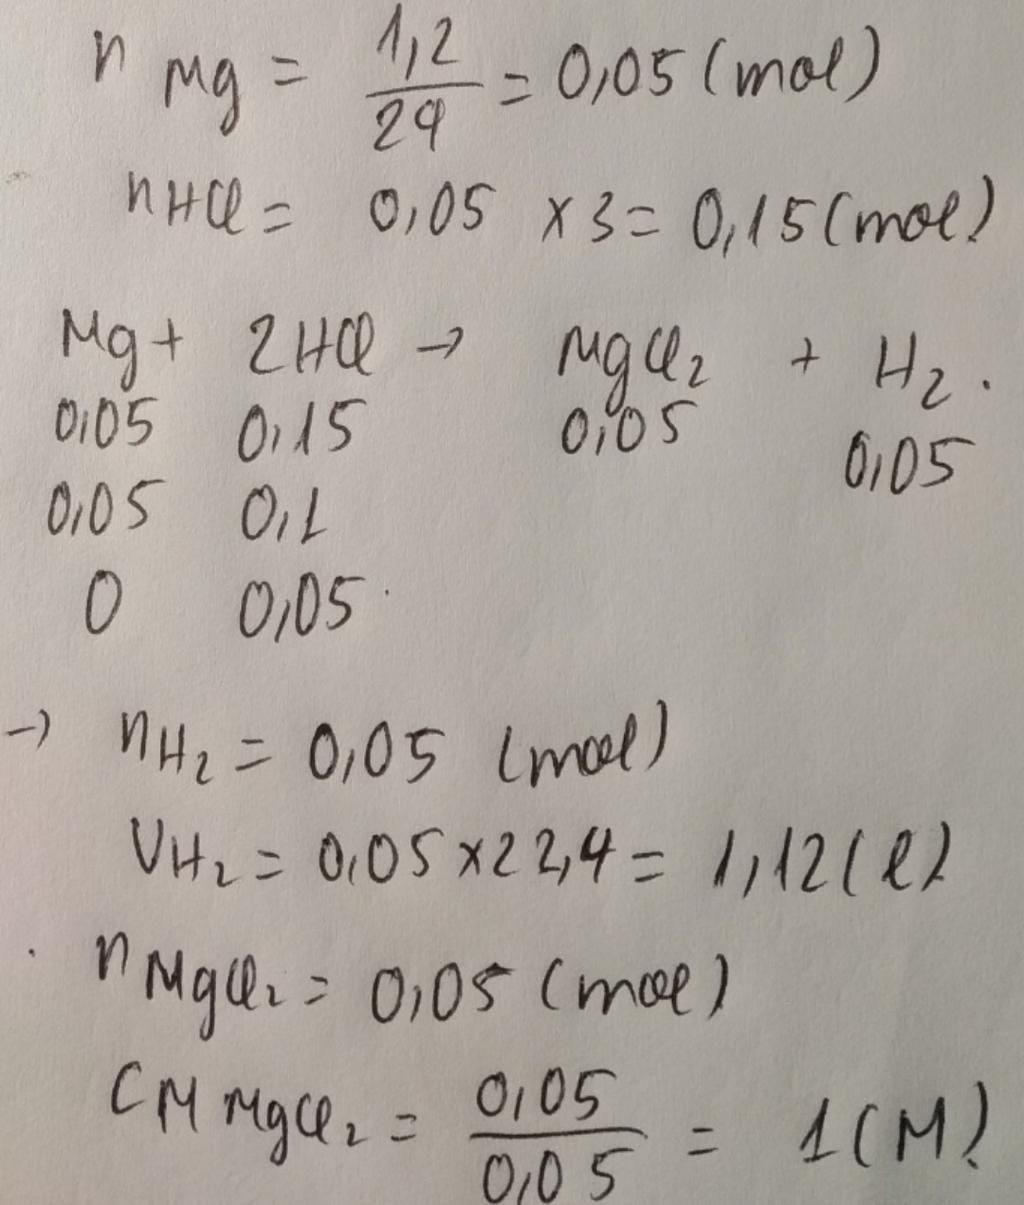 n Mg = 1,2/24 = 0,05 (mol)
nHCl = 0,05 x 3 = 0,15 (mol)
Mg + 2HCl → MgCl₂ + H₂.
0,05 0,15 0,05 0,05
0,05 0,1
0 0,05
→ nH₂ = 0,05 (mol)
VH₂ = 0,05 x 22,4 = 1,12 (l)
n MgCl₂ = 0,05 (mol)
CM MgCl₂ = 0,05/0,05 = 1 (M)